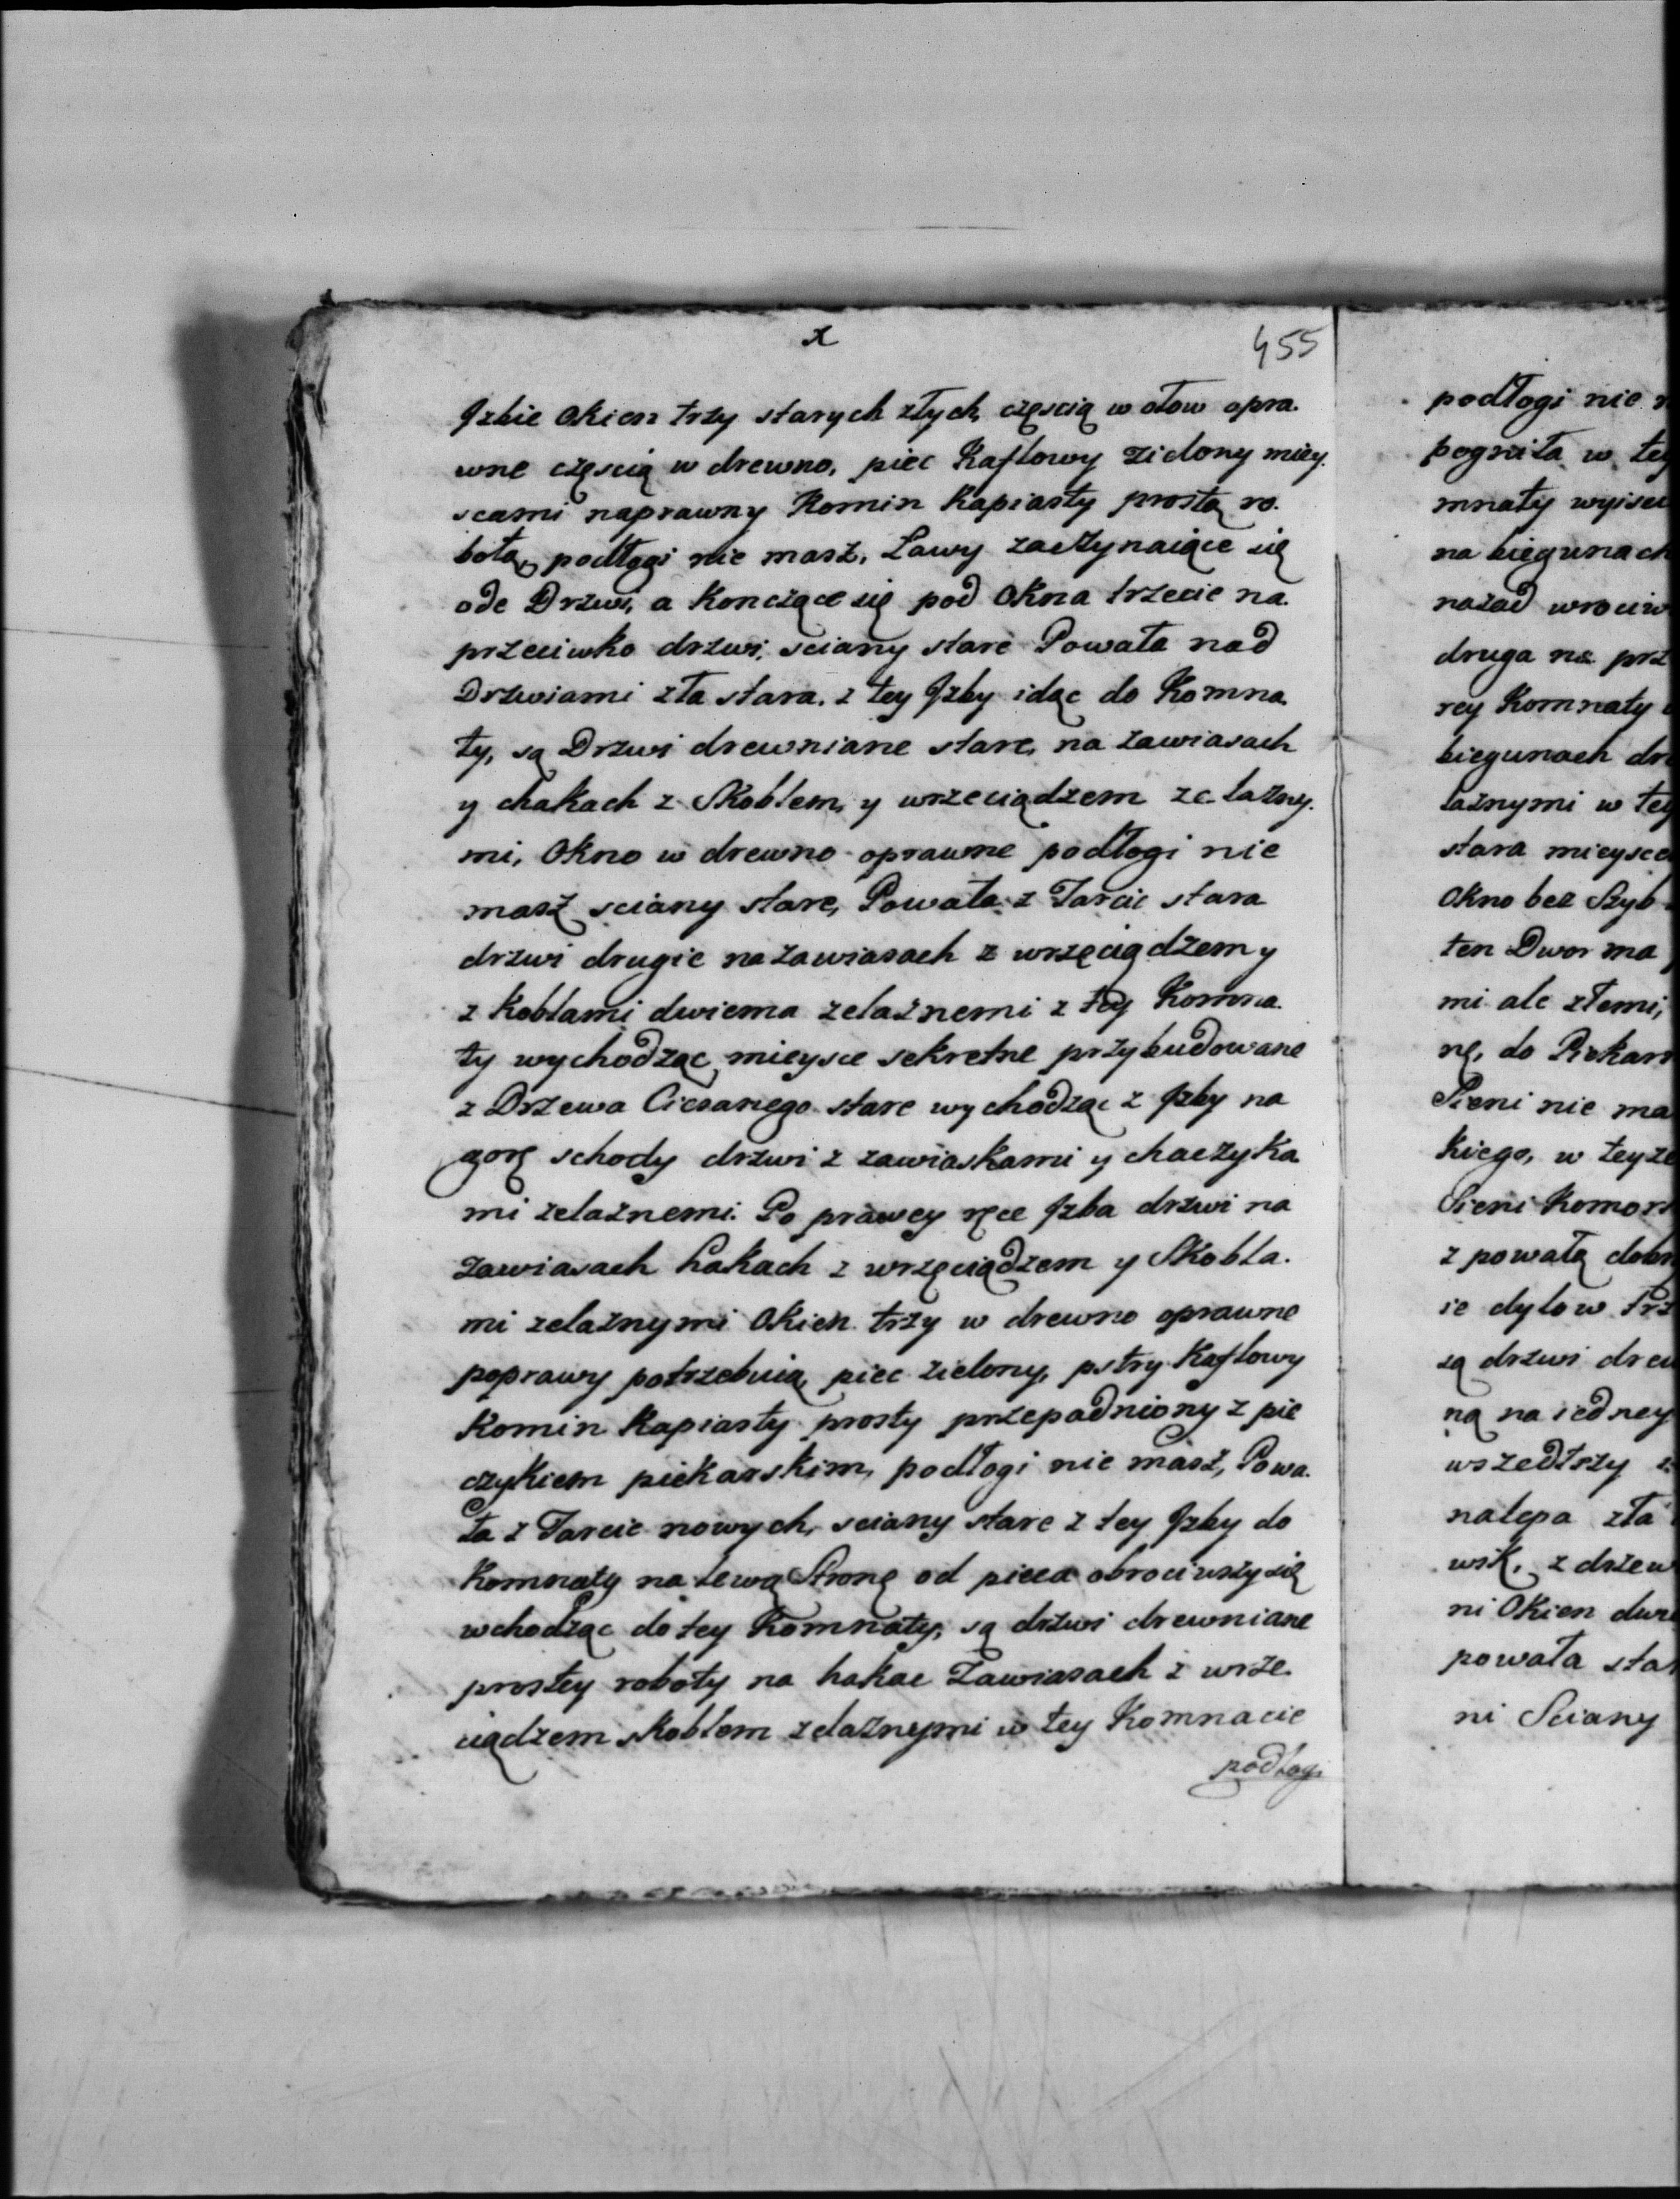 x
455
Jzbie Okien trzy starych złych, częscią w ołow opra.
wne częscią w drewno, piec Kaflowy zielony miey.
scami naprawny Komin Kapiasty prostą ro.
botą, podłogi nie masz, Ławy zaczynaiące się
ode Drzwi, a Konczące się pod Okna trzecie na.
przeciwko drzwi, sciany stare Powała nad
Drzwiami zła stara. z tey Jzby idąc do Komna.
ty, są Drzwi drewniane stare, na zawiasach
y chakach z Skoblem, y wrzeciądzem zelazny.
mi, Okno w drewno oprawne podłogi nie
masz sciany stare, Powała z Tarcic stara
drzwi drugie na zawiasach z wrzęciądzem y
z Koblami dwiema zelaznemi z tey Komna.
ty wychodząc, mieysce sekretne przybudowane
z Drzewa Ciesanego stare wychodząc z Jzby na
gorę schody drzwi z zawiaskami y chaczyka.
mi zelaznemi. Po prawey ręce Jzba drzwi na
zawiasach hakach z wrzęciądzem y Skobla.
mi zelaznymi Okien trzy w drewno oprawne
poprawy potrzebuią, piec zielony, pstry Kaflowy
Komin Kapiasty prosty przepadniony z pie
czykiem piekarskim, podłogi nie masz, Powa.
ła z Tarcic nowych, sciany stare z tey Jzby do
Komnaty na lewą Stronę od pieca obrociwszy się
wchodząc do tey Komnaty, są drzwi drewniane
prostey roboty na hakac Zawiasach z wrze.
ciądzem skoblem zelaznymi w tey Komnacie
podłogi
podłogi nie
pogniła w tey
mnaty
na biegunach
nazad
druga na prz
rey Komnaty
biegunach dr
laznymi w tey
stara mieysce
Okno bez Szyb
ten Dwor ma
mi ale złemi,
nę, do Piekar
Sieni nie ma
kiego, w teyze
Sieni Komor
z powałą dobr
ie dylow Prz
są drzwi drew
ną na iedney
wszedłszy
nalepa zła
wsk, z drzew
ni Okien dwi
powała sta
ni Sciany